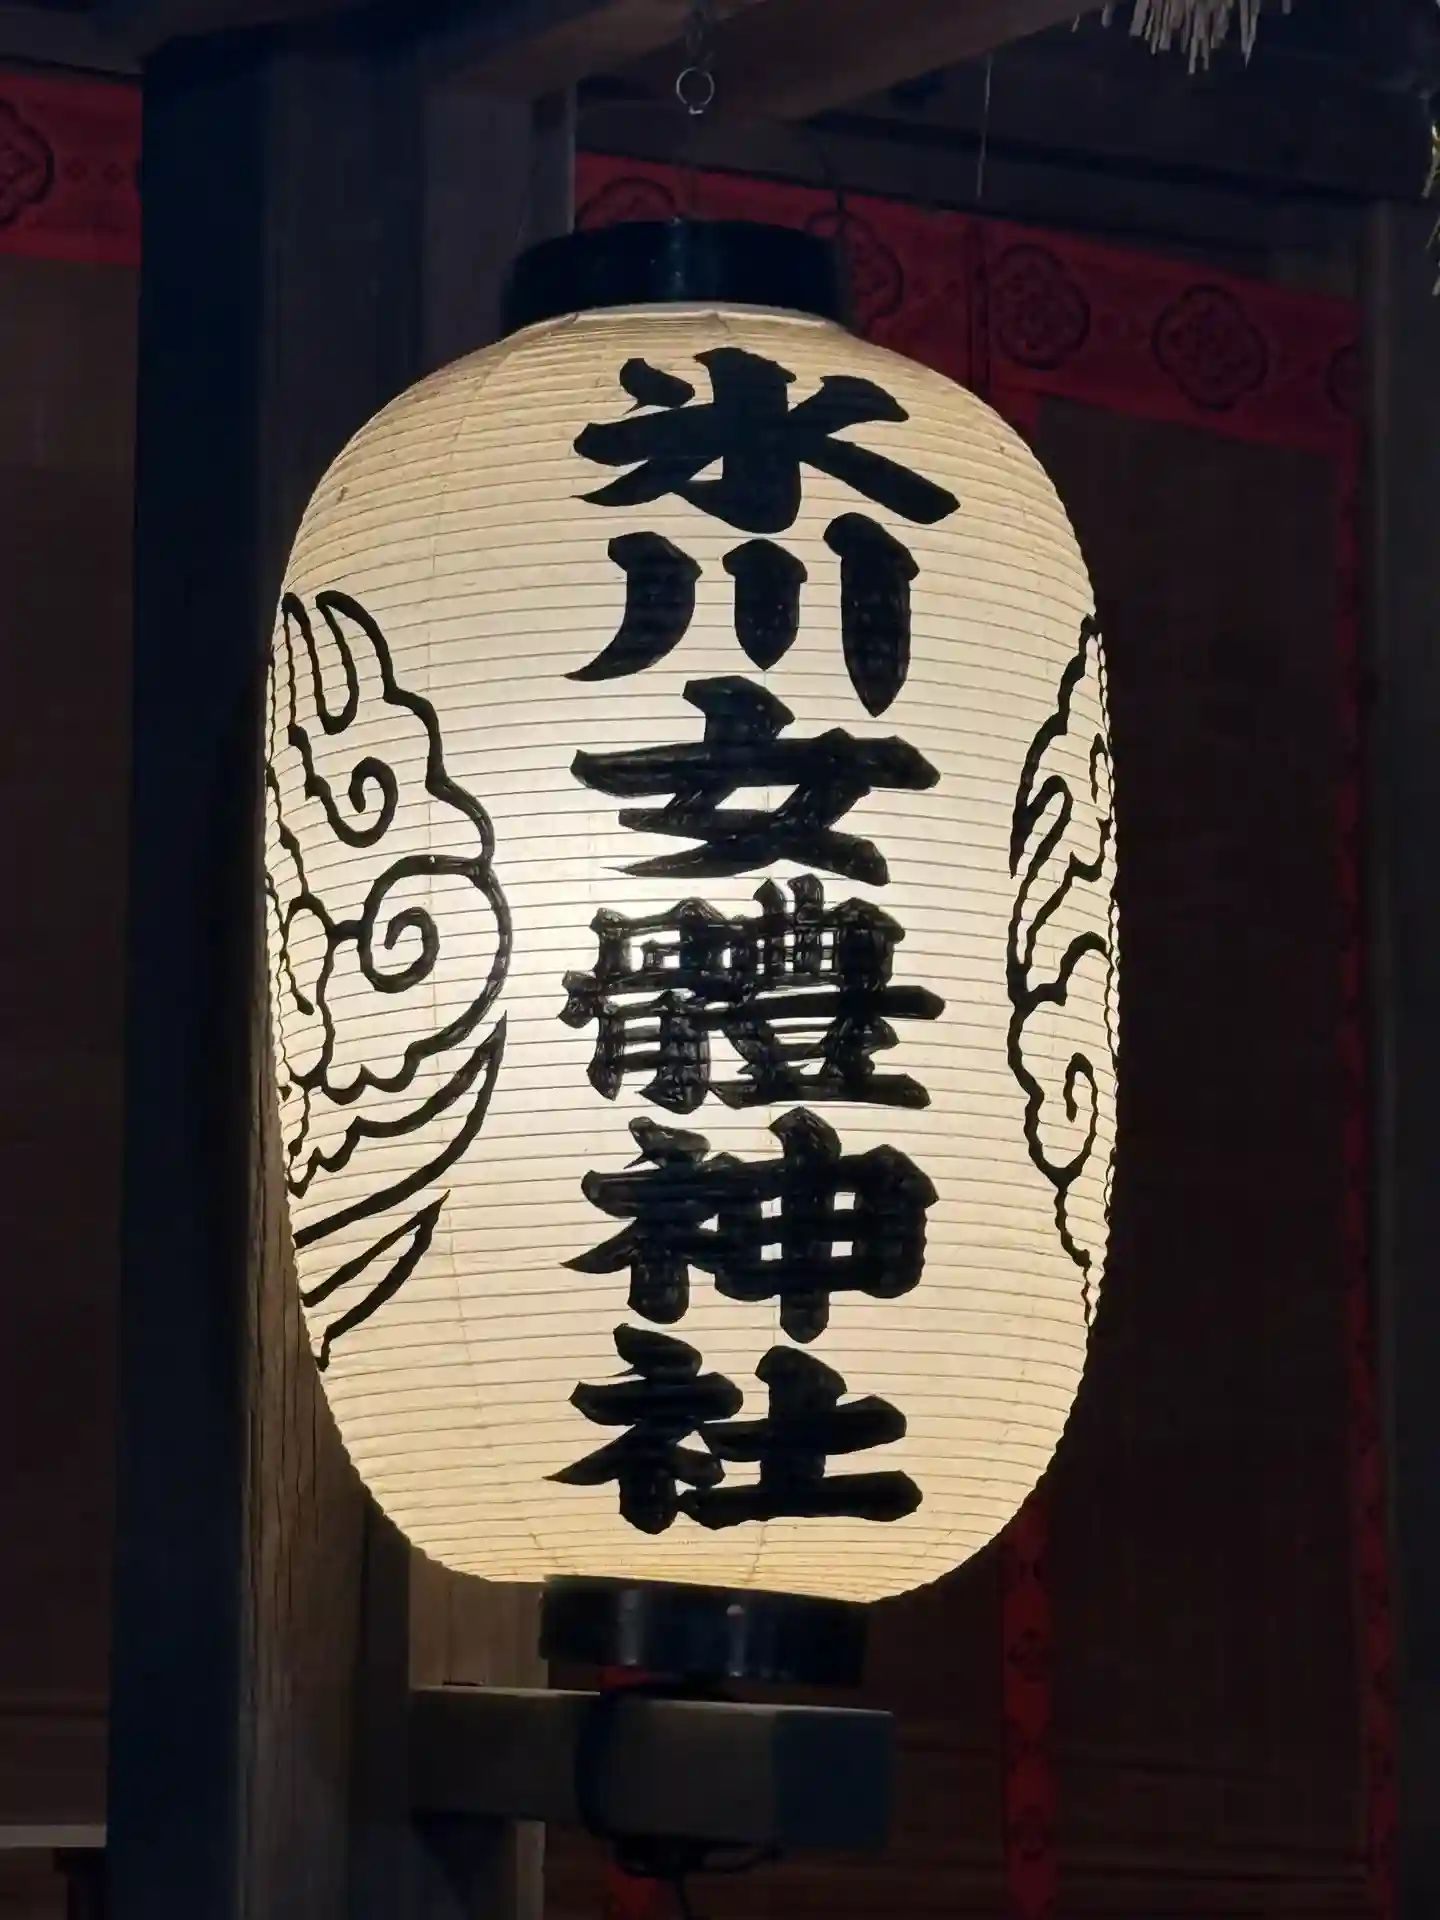 氷川女體神社